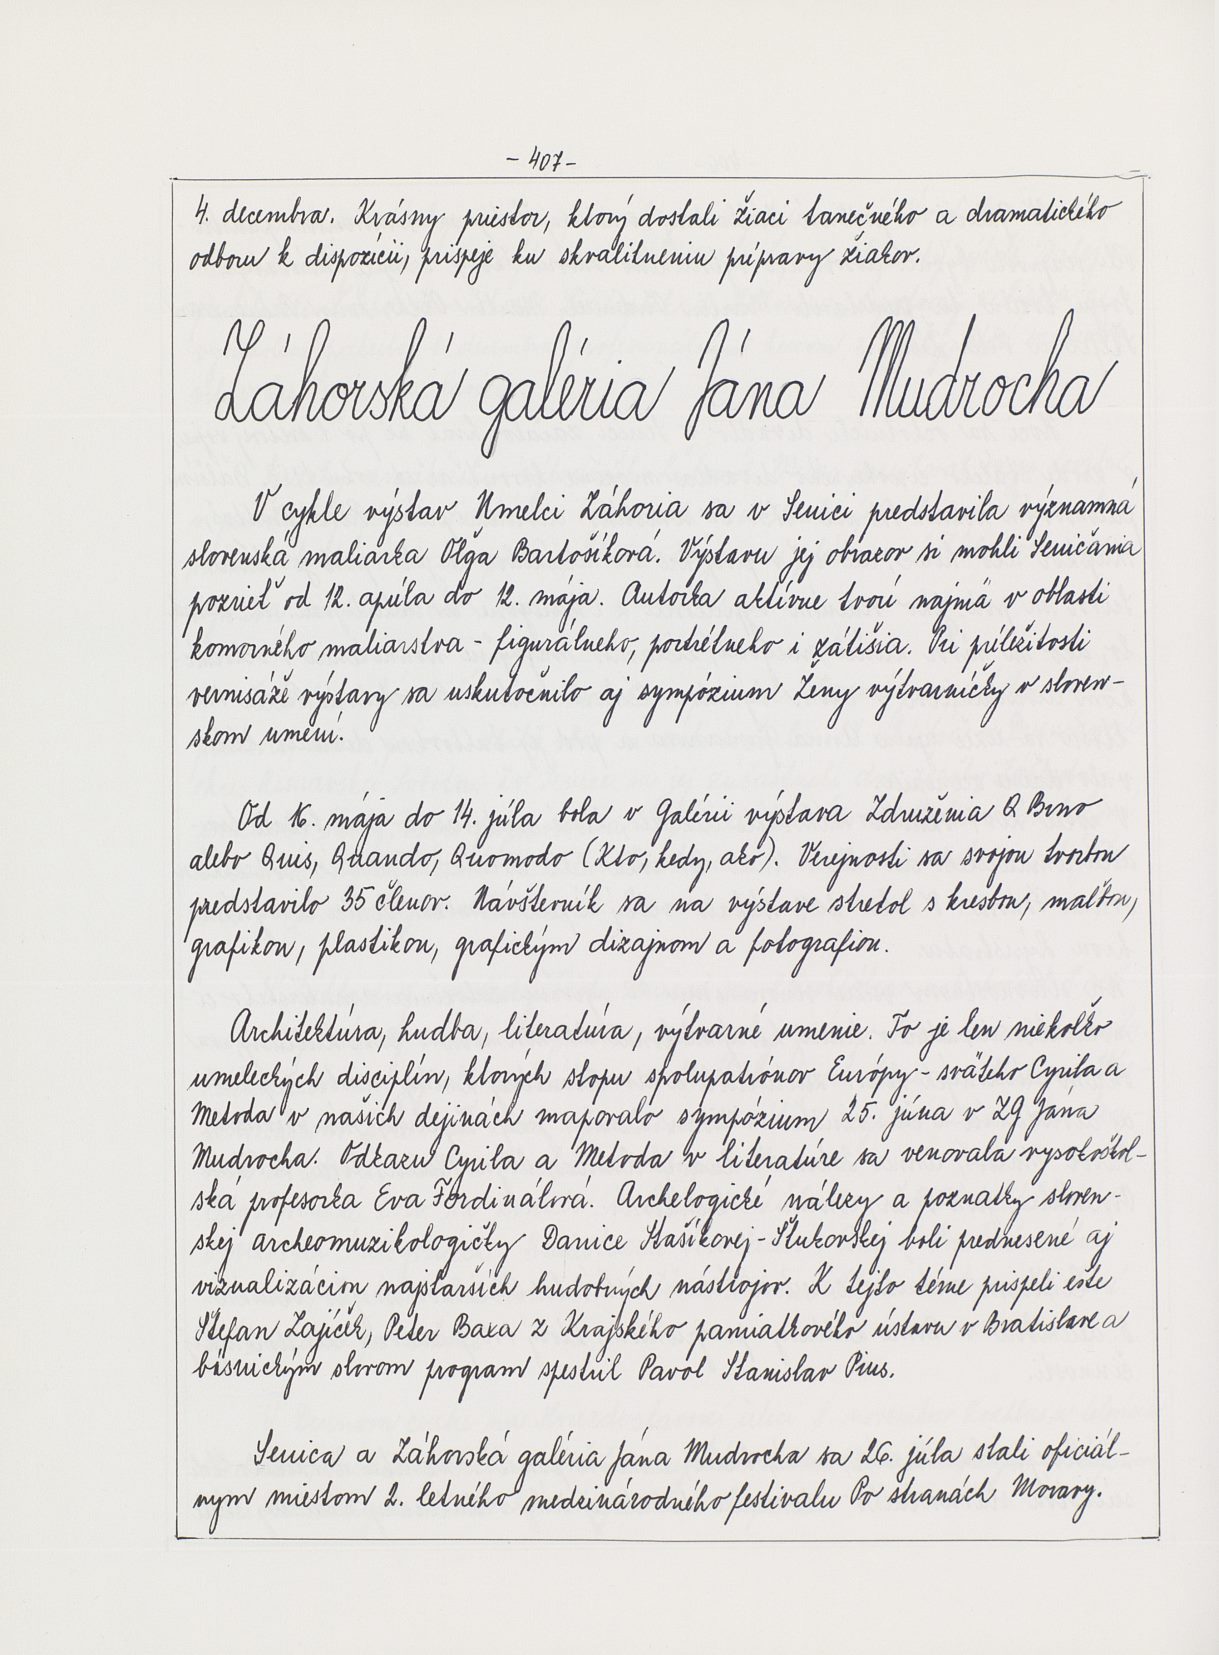 - 407 -
4. decembra. Krásny priestor, ktorý dostali žiaci tanečného a dramatického
odboru k dispozícii, prispeje ku skvalitneniu prípravy žiakov.
Záhorská galéria Jána Mudrocha
V cykle výstav Umelci Záhoria sa v Senici predstavila významná
slovenská maliarka Oľga Bartošíková. Výstavu jej obrazov si mohli Seničania
pozrieť od 12. apríla do 12. mája. Autorka aktívne tvorí najmä v oblasti
komorného maliarstva - figurálneho, portrétneho i zátišia. Pri príležitosti
vernisáže výstavy sa uskutočnilo aj sympózium Ženy výtvarníčky v sloven-
skom umení.
Od 16. mája do 14. júla bola v Galérii výstava Združenia Q Brno
alebo Quis, Quando, Quomodo (Kto, kedy, ako). Verejnosti sa svojou tvorbou
predstavilo 35 členov. Návštevník sa na výstave stretol s kresbou, maľbou,
grafikou, plastikou, grafickým dizajnom a fotografiou.
Architektúra, hudba, literatúra, výtvarné umenie. To je len niekoľko
umeleckých disciplín, ktorých stopu spolupatrónov Európy - svätého Cyrila a
Metoda v našich dejinách mapovalo sympózium 25. júna v ZG Jána
Mudrocha. Odkazu Cyrila a Metoda v literatúre sa venovala vysokoškol-
ská profesorka Eva Ferdinálová. Archelogické nálezy a poznatky sloven-
skej archeomuzikologičky Danice Stašíkovej-Štukovskej boli prednesené aj
vizualizáciou najstarších hudobných nástrojov. K tejto téme prispeli ešte
Štefan Zajíček, Peter Baxa z Krajského pamiatkového ústavu v Bratislave a
básnickým slovom program spestril Pavol Stanislav Pius.
Senica a Záhorská galéria Jána Mudrocha sa 26. júla stali oficiál-
nym miestom 2. letného medzinárodného festivalu Po stranách Moravy.